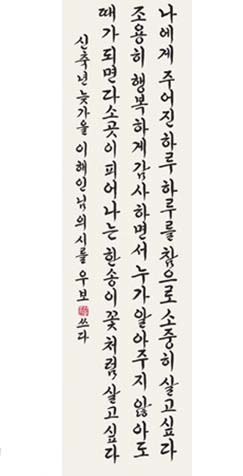 나에게 주어진 하루하루를 참으로 소중히 살고싶다
조용히 행복하게 감사하면서 누가 알아주지 않아도
때가 되면 다소곳이 피어나는 한송이 꽃처럼 살고싶다
신축년 늦가을 이해인님의 시를 우보 쓰다